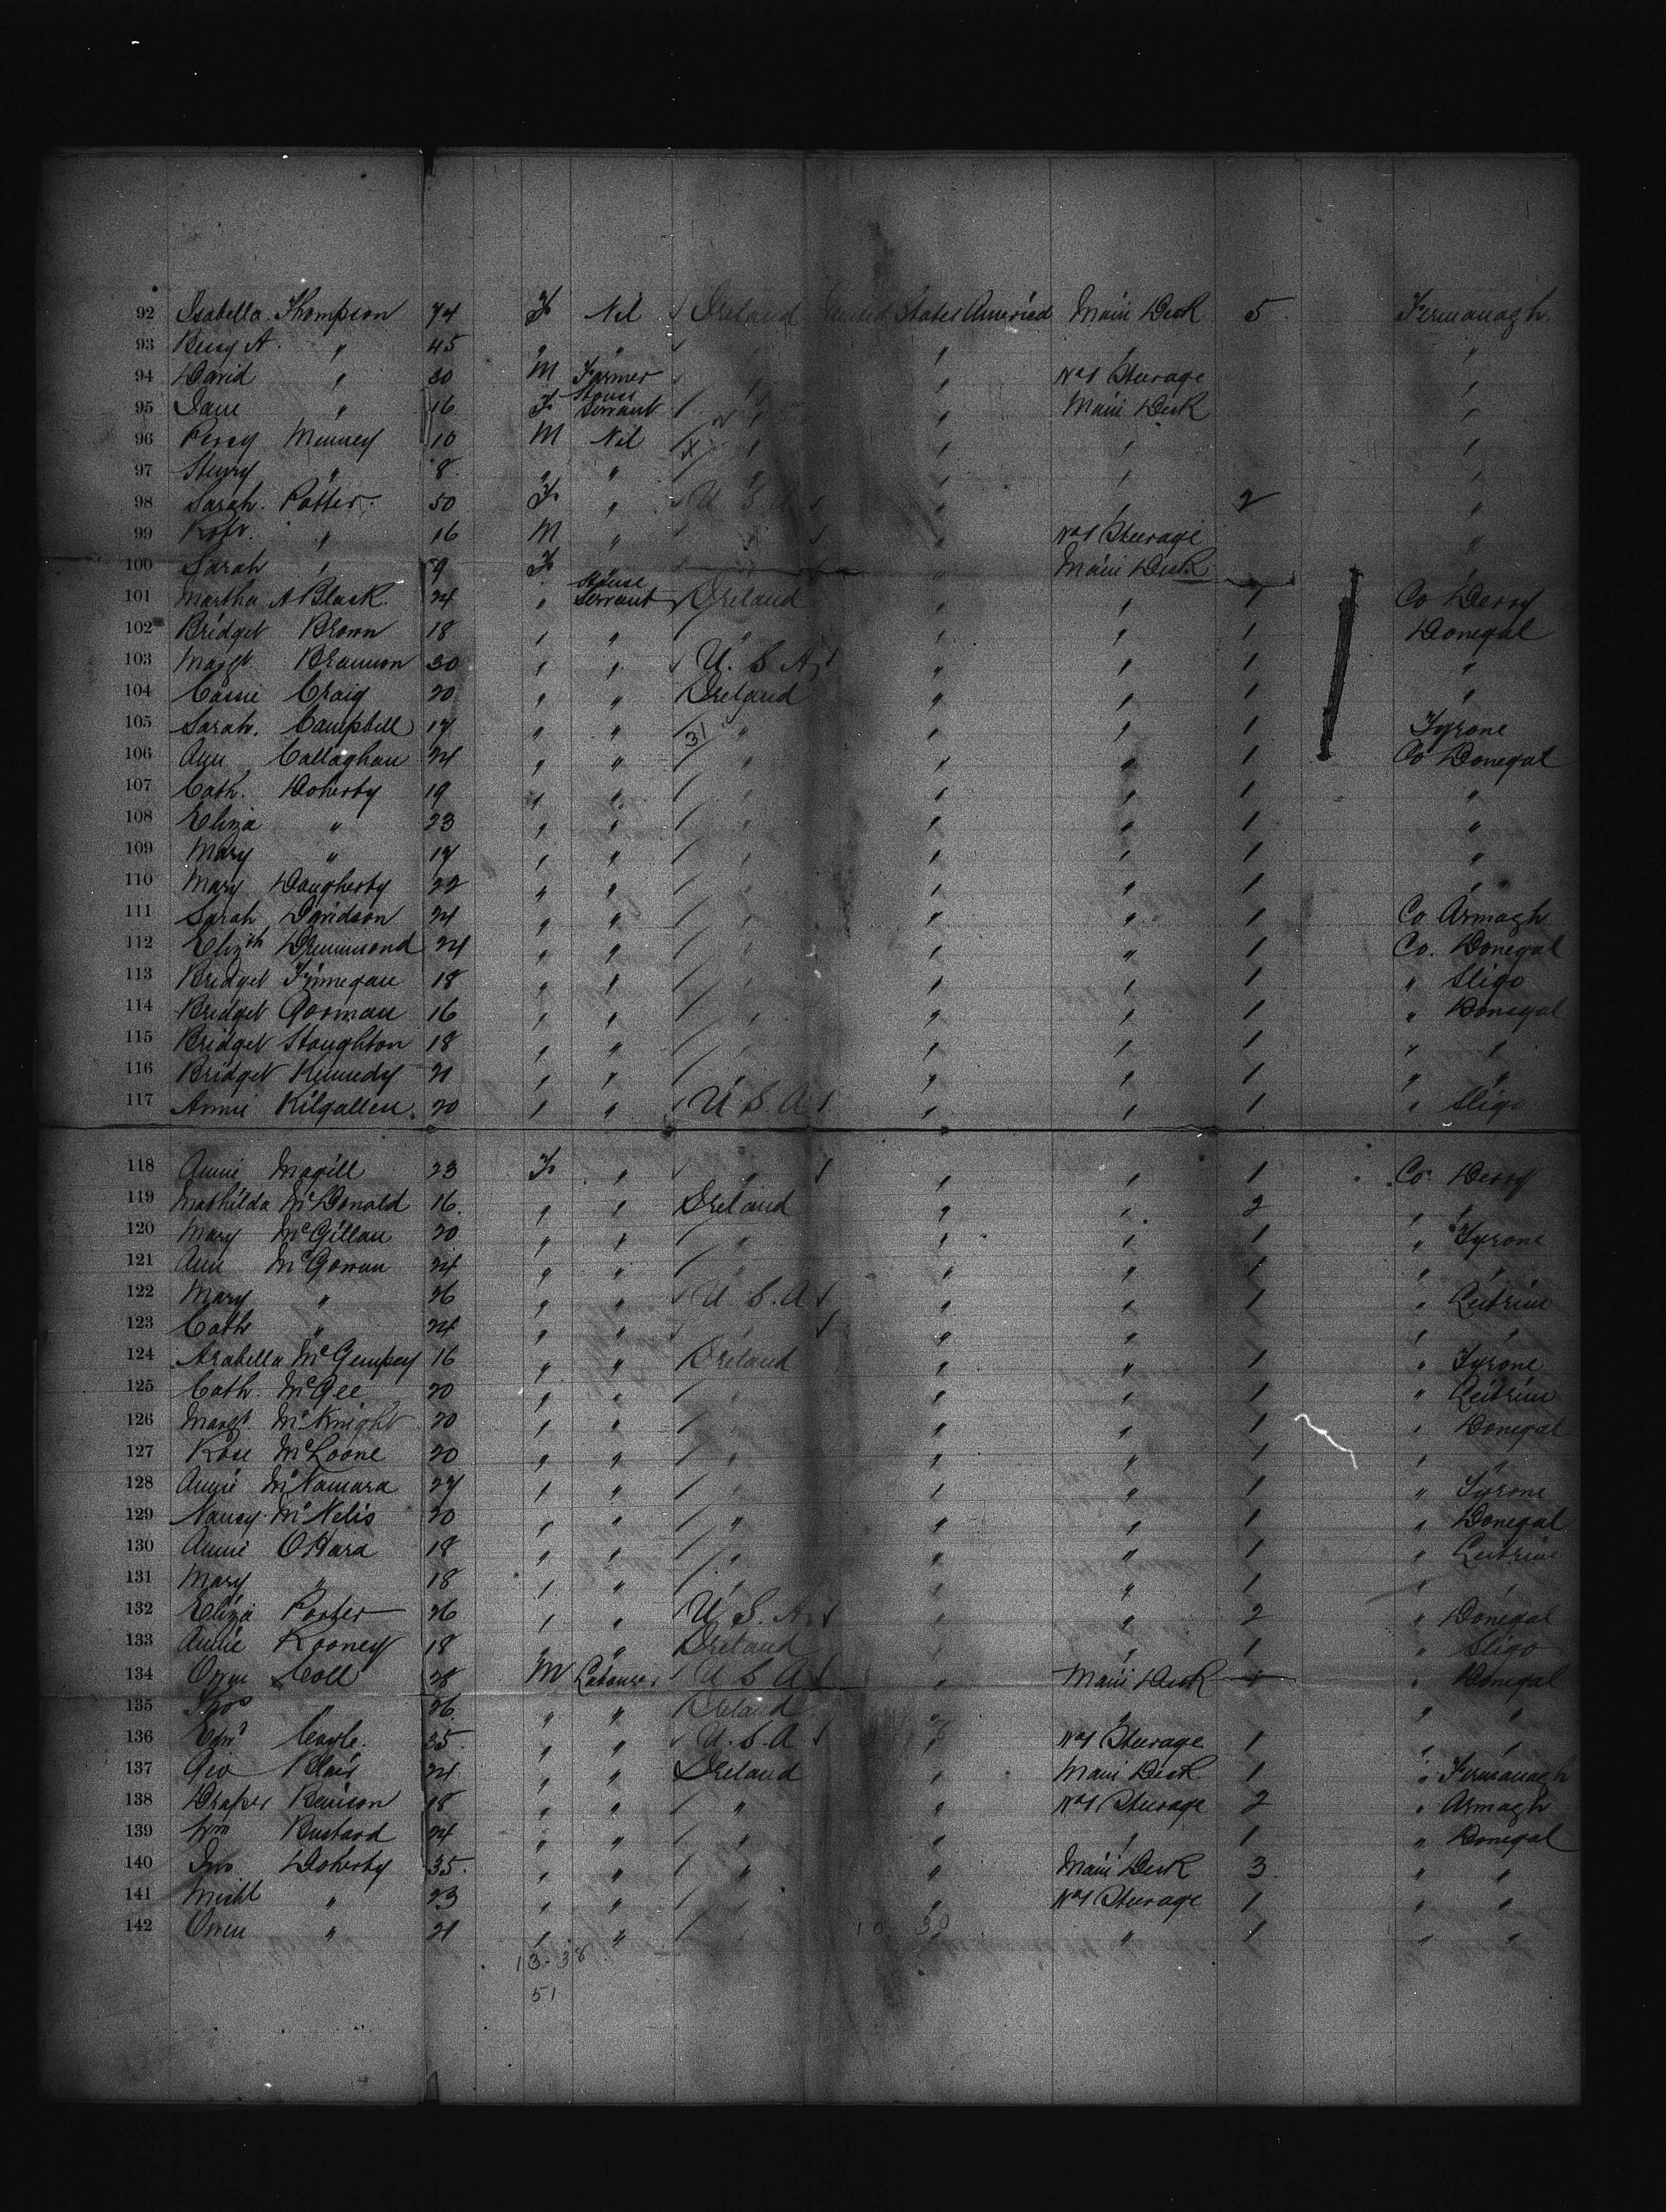 92 Isabella Thompson 74 F Nil Ireland United States America Main Deck 5 Fermanagh
93 A. " 45 " " " " " "
94 David " 30 M Farmer " " No 1 Steerage "
95 Jane " 16 F House Servant " " Main Deck "
96 Percy 10 M Nil " " " "
97 Henry " 8 " " " " " "
98 Sarah Potter 50 F " U S A " " 2 "
99 Robt. " 16 M " " " No 1 Steerage "
100 Sarah " 9 F " " Main Deck "
101 Martha A Black 24 " House Servant Ireland " " 1 Co Derry
102 Bridget Brown 18 " " " " " 1 Donegal
103 Margt. Brannon 30 " " U. S. A " " 1 "
104 Cassie Craig 20 " " Ireland " " 1 "
105 Sarah. Campbell 17 " " 31 " " " 1 Tyrone
106 Ann Callaghan 24 " " " " " 1 Co Donegal
107 Cath. Doherty 19 " " " " " 1 "
108 Eliza " 23 " " " " " 1 "
109 Mary " 17 " " " " " 1 "
110 Mary Daugherty 22 " " " " " 1 "
111 Sarah Davidson 24 " " " " " 1 Co Armagh
112 Elizth Drummond 24 " " " " " 1 Co. Donegal
113 Bridget Finnegan 18 " " " " " 1 " Sligo
114 Bridget Gorman 16 " " " " " 1 " Donegal
115 Bridget 18 " " " " " 1 " "
116 Bridget Kennedy 21 " " " " " 1 " "
117 Annie Kilgallen 20 " " U S. A " " 1 " Sligo
118 Annie Magill 23 F " " " " 1 Co. Derry
119 Mathilda McDonald 16 " " Ireland " " 2 " "
120 Mary McGillan 20 " " " " " 1 " Tyrone
121 Ann McGowan 24 " " " " " 1 " "
122 Mary " 26 " " U. S. A " " 1 " Leitrim
123 Cath " 24 " " " " " 1 " "
124 Arabella 16 " " Ireland " " 1 " Tyrone
125 Cath. McGee 20 " " " " " 1 " Leitrim
126 Margt. McKnight 20 " " " " " 1 " Donegal
127 Rose McLoone 20 " " " " " 1 " "
128 Annie McNamara 27 " " " " " 1 " Tyrone
129 Nancy McNelis 20 " " " " " 1 " Donegal
130 Annie O'Hara 18 " " " " " 1 " Leitrim
131 Mary " 18 " " " " " 1 " "
132 Eliza Porter 26 " " U. S. A " " 2 " Donegal
133 Annie Rooney 18 " " Ireland " " 1 " Sligo
134 Owen Coll 28 M Labourer U S A " Main Deck 1 " Donegal
135 " 26 " " Ireland " " " "
136 Edwd 35 " " U. S. A " No 1 Steerage 1 " "
137 Geo Blair 24 " " Ireland " Main Deck 1 " Fermanagh
138 Draper 18 " " " " No 1 Steerage 2 " Armagh
139 Wm Bustard 24 " " " " " 1 " Donegal
140 Jno Doherty 35 " " " " Main Deck 3 " "
141 Michl " 23 " " " " No 1 Steerage 1 " "
142 Owen " 21 " " " " " 1 " "
10 30
13-38
51